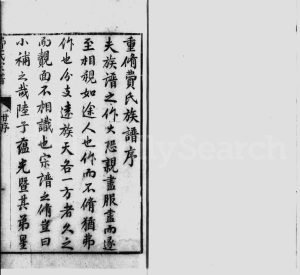 重脩費氏族譜序
夫族譜之作少恐親盡服盡而遂
至相視如途人也作而不脩猶弗
作也分支遠族天各一方者久之
而覿面不相識也宗譜之脩豈曰
小補之哉陸子蘊光暨其弟星